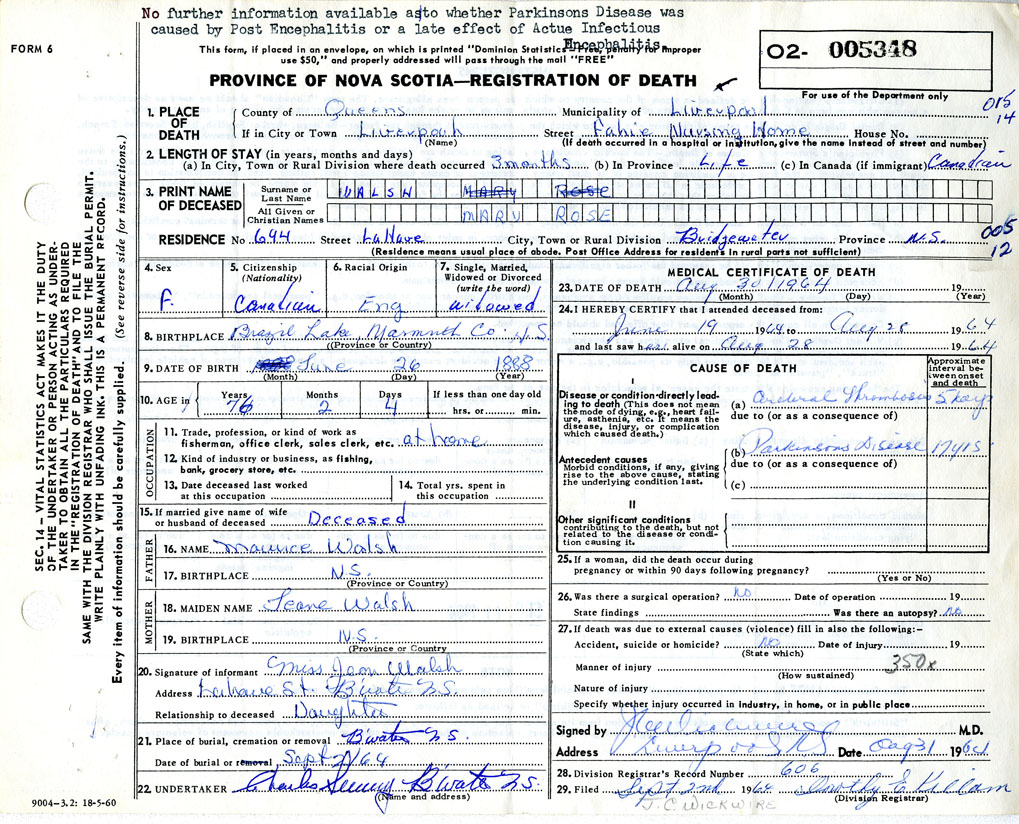 No further information available asto whether Parkinsons Disease was
caused by Post Encephalitis or a late effect of Actue Infectious
Encephalitis.
FORM 6
This form, if placed in an envelope, on which is printed "Dominion Statistics—Free, penalty for improper
use $50," and properly addressed will pass through the mail "FREE"
O2- 005348
PROVINCE OF NOVA SCOTIA—REGISTRATION OF DEATH
For use of the Department only
015
14
1. PLACE OF DEATH
County of Queens Municipality of Liverpool
If in City or Town Liverpool Street Fahie Nursing Home House No.
(Name) (If death occurred in a hospital or institution, give the name instead of street and number)
2. LENGTH OF STAY (in years, months and days)
(a) In City, Town or Rural Division where death occurred 3 months (b) In Province Life (c) In Canada (if immigrant) Canadian
3. PRINT NAME OF DECEASED
Surname or Last Name WALSH MARY ROSE
All Given or Christian Names MARY ROSE
RESIDENCE No 694 Street LaHave City, Town or Rural Division Bridgewater Province N.S.
005
12
(Residence means usual place of abode. Post Office Address for residents in rural parts not sufficient)
4. Sex
F.
5. Citizenship
(Nationality)
Canadian
6. Racial Origin
Eng
7. Single, Married,
Widowed or Divorced
(write the word)
widowed
8. BIRTHPLACE Brazil Lake, Yarmouth Co. N.S.
(Province or Country)
9. DATE OF BIRTH June 26 1888
(Month) (Day) (Year)
10. AGE in
Years Months Days If less than one day old
76 2 4 hrs. or min.
OCCUPATION
11. Trade, profession, or kind of work as
fisherman, office clerk, sales clerk, etc. at home
12. Kind of industry or business, as fishing,
bank, grocery store, etc.
13. Date deceased last worked
at this occupation
14. Total yrs. spent in
this occupation
15. If married give name of wife
or husband of deceased Deceased
FATHER
16. NAME Maurice Walsh
17. BIRTHPLACE N.S.
(Province or Country)
MOTHER
18. MAIDEN NAME Jeane Walsh
19. BIRTHPLACE N.S.
(Province or Country
20. Signature of informant Miss Jean Walsh
Address Lahave St. B'water N.S.
Relationship to deceased Daughter
21. Place of burial, cremation or removal B'water N.S.
Date of burial or removal Sept 2/64
22. UNDERTAKER Charles B'water N.S.
(Name and address)
9004-3.2: 18-5-60
MEDICAL CERTIFICATE OF DEATH
23. DATE OF DEATH Aug 30/1964 19
(Month) (Day) (Year)
24. I HEREBY CERTIFY that I attended deceased from:
June 19 1964 to Aug 28 1964
and last saw her alive on Aug 28 1964
CAUSE OF DEATH
Approximate
interval be-
tween onset
and death
I
Disease or condition directly lead-
ing to death (This does not mean
the mode of dying, e.g., heart fail-
ure, asthenia, etc. It means the
disease, injury, or complication
which caused death.)
(a) Cerebral Thrombosis 5 days
due to (or as a consequence of)
(b) Parkinsons Disease 17 yrs
Antecedent causes
Morbid conditions, if any, giving
rise to the above cause, stating
the underlying condition last.
due to (or as a consequence of)
(c)
II
Other significant conditions
contributing to the death, but not
related to the disease or condi-
tion causing it.
25. If a woman, did the death occur during
pregnancy or within 90 days following pregnancy?
(Yes or No)
26. Was there a surgical operation? NO Date of operation 19
State findings Was there an autopsy? NO
27. If death was due to external causes (violence) fill in also the following:—
Accident, suicide or homicide? NO Date of injury 19
(State which)
350x
Manner of injury
(How sustained)
Nature of injury
Specify whether injury occurred in industry, in home, or in public place
Signed by M.D.
Address Liverpool NS Date Aug 31 1964
28. Division Registrar's Record Number 606
29. Filed Sept 2nd 1964 Dorothy E Killam
(Division Registrar)
J.C WICKWIRE
SEC. 14 – VITAL STATISTICS ACT MAKES IT THE DUTY
OF THE UNDERTAKER OR PERSON ACTING AS UNDER-
TAKER TO OBTAIN ALL THE PARTICULARS REQUIRED
IN THE "REGISTRATION OF DEATH" AND TO FILE THE
SAME WITH THE DIVISION REGISTRAR WHO SHALL ISSUE THE BURIAL PERMIT.
WRITE PLAINLY WITH UNFADING INK. THIS IS A PERMANENT RECORD.
Every item of information should be carefully supplied. (See reverse side for instructions.)